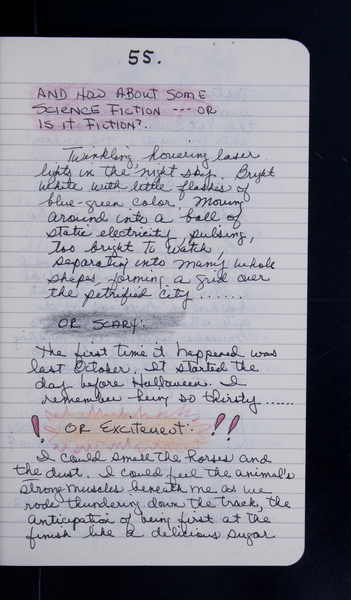 55.
AND HOW ABOUT SOME
SCIENCE FICTION --- OR
IS IT FICTION?.
Twinkling, hovering laser
lights in the night sky. Bright
White with little flashes of
blue-green color. Moving
around into a ball of
static electricity, pulsing,
Too bright to watch,
separating into many whole
shapes forming a grid over
the petrified city ......
OR SCARY:
The first time it happened was
last October. It started the
day before Halloween. I
remember being so thirsty ......
! OR EXCITEMENT: !!
I could smell the horses and
the dust. I could feel the animal's
strong muscles beneath me as we
rode thundering down the track, the
anticipation of being first at the
finish like a delicious sugar